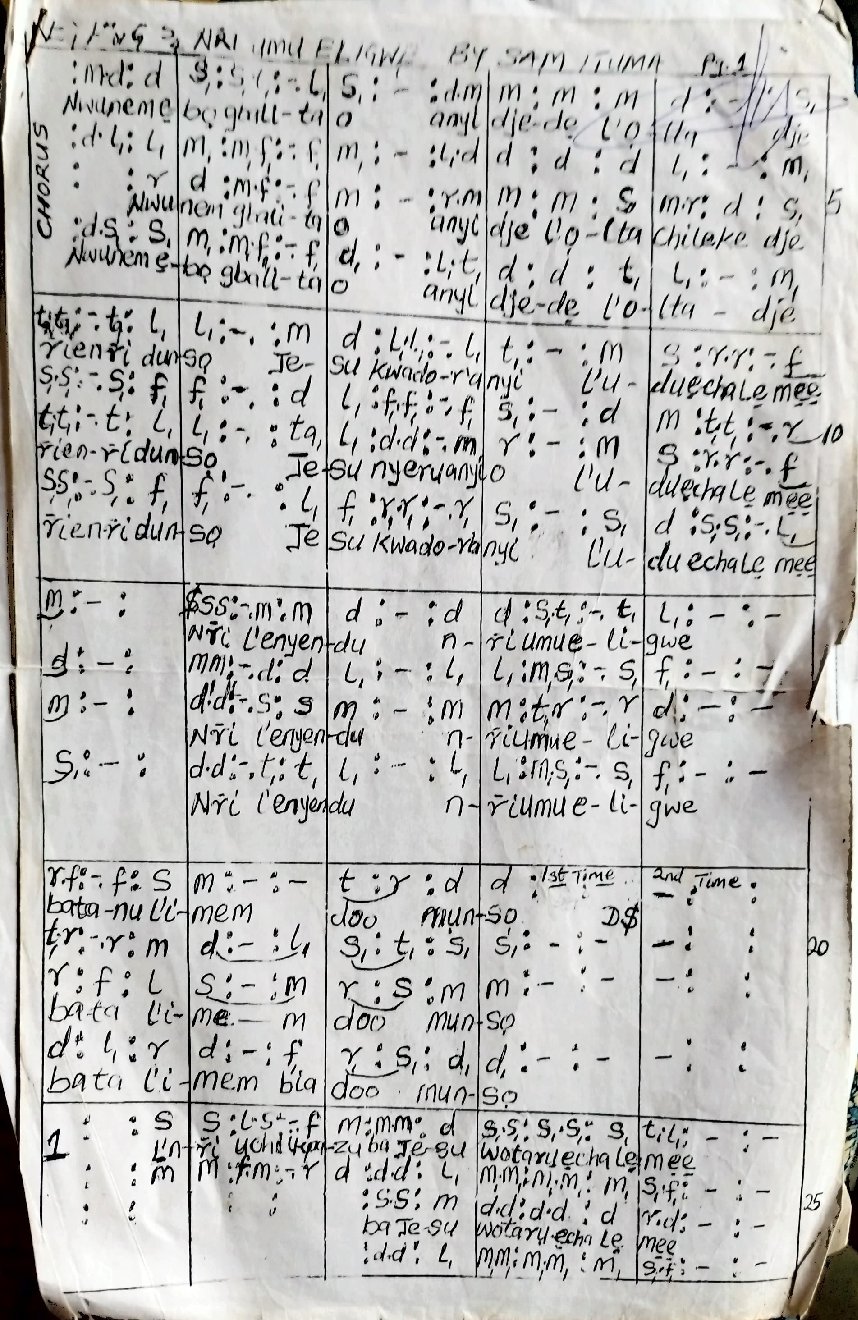 NRI UMU ELIGWE BY SAM ITUMA Pg. 1
CHORUS
:m.d: d | s, : s, l, :-. l, | s, : - : d.m | m : m : m | d : - : s,
Nwunemẹ bọ gbali-ta o anyị dje-dẹ l'ọ-lta dje
:d.l,: l, | m, : m, f, :-. f, | m, : - : l,.d | d : d : d | l, : - : m,
: : r | d : m.f :-. f | m : - : r.m | m : m : s, | m.r : d : s, 5
Nwunem gbali-ta o anyị dje l'ọ-lta Chileke dje
:d.s,: s, | m, : m, f, :-. f, | d, : - : l,.t, | d : d : t, | l, : - : m,
Nwunemẹ-bọ gbali-ta o anyị dje-dẹ l'o-lta - dje
t,t, :-. t, : l, | l, :-. : m | d : l,l, :-. l, | t, : - : m | s : r.r :-. f
rien-ri dun-sọ Je-su kwado-r'anyi l'u-duẹchalẹ mẹẹ
s,s, :-. s, : f, | f, :-. : d | l, : f,f, :-. f, | s, : - : d | m : t,t, :-. r 10
t,t, :-. t, : l, | l, :-. : ta, | l, : d.d :-. m | r : - : m | s : r.r :-. f
rien-ri dun-sọ Je-su nyeruanyi o l'u-duẹchalẹ mẹẹ
s,s, :-. s, : f, | f, :-. : l, | f, : r,r, :-. r, | s, : - : s, | d : s,s, :-. l,
rien-ri dun-sọ Je su kwado-ra nyi l'u-du echalẹ mẹẹ
m : - : | $ s s :-. m : m | d : - : d | d : s,t, :-. t, | l, : - : -
Nri l'enyen-du n-riumue-li-gwe
d : - : | m m :-. d : d | l, : - : l, | l, : m,s, :-. s, | f, : - : -
m : - : | d'd' :-. s : s | m : - : m | m : t,r :-. r | d : - : -
Nri l'enyen-du n-riumue-li-gwe
s, : - : | d.d :-. t, : t, | l, : - : l, | l, : m,s, :-. s, | f, : - : -
Nri l'enyendu n-riumue-li-gwe
r.f :-. f : s | m : - : - | t, : r : d | d 1st Time | 2nd Time
bata-nu l'i-mem doo mun-sọ D$
t,r :-. r : m | d : - : l, | s, : t, : s, | s, : - : - | - : : 20
r : f : l | s : - : m | r : s : m | m : - : - | - : :
bata l'i-me — m doo mun-sọ
d : l, : r | d : - : f | r : s, : d, | d, : - : - | - : :
bata l'i-mem bia doo mun-sọ
1 : : s | s : l.s :-. f | m : m m : d | s,.s, : s,.s, : s, | t,l, : - : -
L'n-ri zu ba Je-su wotaruẹchalẹ mẹẹ
: : m | m : f.m :-. r | d : d d : l, | m,m, : m,.m, : m, | s,.f, : - : -
: : | : : | : s s : m | d.d : d.d : d | r.d : - : - 25
ba Je-su wotaruẹchalẹ mẹẹ
: d.d : l, | m,m, : m,.m, : m, | s,.f, : - : -